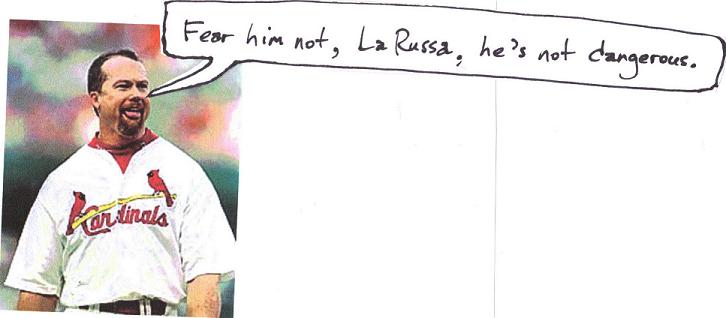 Fear him not, LaRussa, he's not dangerous.
Cardinals